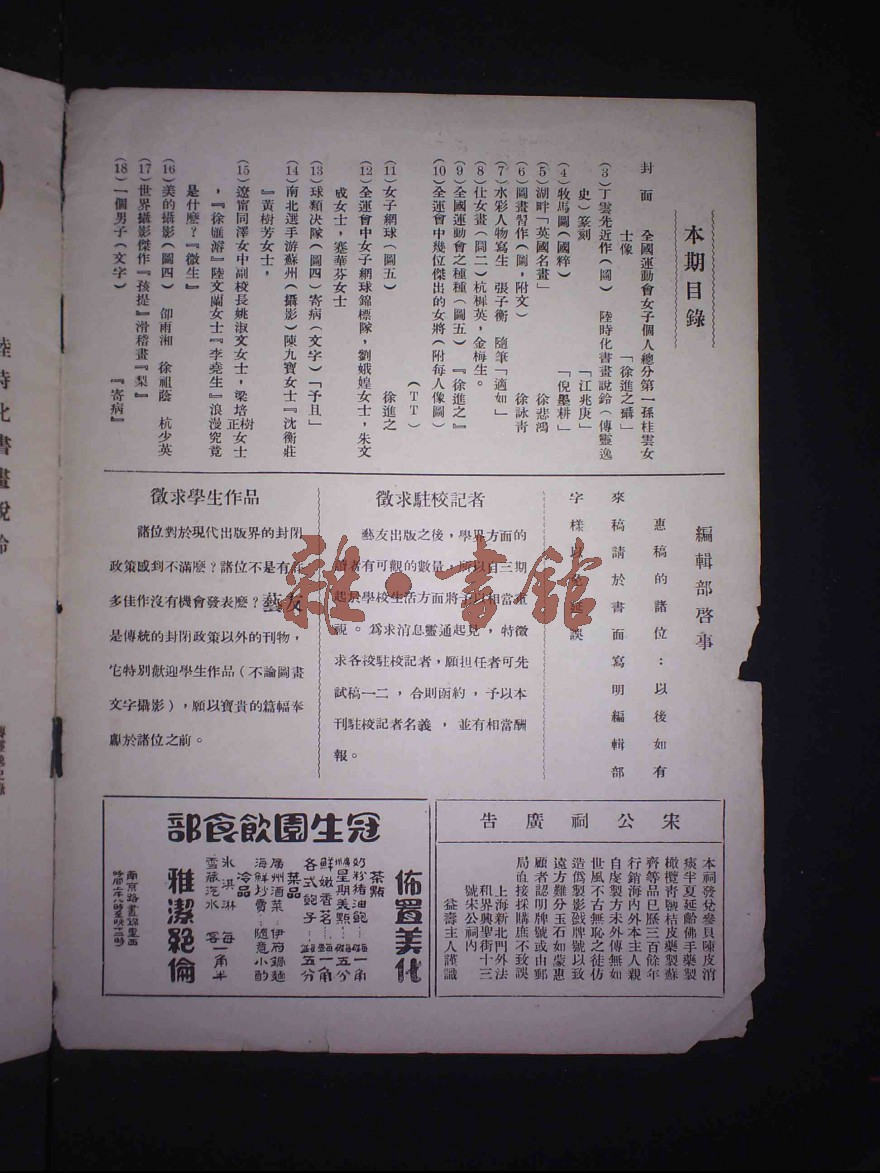 本期目錄
封面　全國運動會女子個人總分第一孫桂雲女
士像　「徐進之礴」
(3)丁雲先近作(圖)　陸時化書畫說鈴(傳靈逸
史)篆刻　「江兆庚」
(4)牧馬圖(國粹)　「倪墨耕」
(5)湖畔「英國名畫」　徐悲鴻
(6)圖畫習作(圖,附文)　徐詠青
(7)水彩人物寫生　張子衡　隨筆「適如」
(8)仕女畫(圖二)杭樨英,金梅生。
(9)全國運動會之種種(圖五)　『徐進之』
(10)全運會中幾位傑出的女將(附每人像圖)
(TT)
(11)女子網球(圖五)　徐進之
(12)全運會中女子網球錦標隊,劉娥媓女士,朱文
成女士,蹇華芬女士
(13)球類決隊(圖四)寄病(文字)「予且」
(14)南北選手游蘇州(攝影)陳九寶女士『沈衡莊
『黃樹芳女士,
(15)遼甯同澤女中副校長姚淑文女士,梁培樹正女士
,『徐匯濬』陸文蘭女士『李堯生』浪漫究竟
是什麼?『微生』
(16)美的攝影(圖四)　邵雨湘　徐祖蔭　杭少英
(17)世界攝影傑作『孩提』滑稽畫『梨』
(18)一個男子(文字)　『寄病』
編輯部啓事
惠稿的諸位:以後如有
來稿請於書面寫明編輯部
字樣以免延誤
徵求駐校記者
藝友出版之後,學界方面的
讀者有可觀的數量,所以自三期
起於學校生活方面將予以相當重
視。爲求消息靈通起見,特徵
求各校駐校記者,願担任者可先
試稿一二,合則函約,予以本
刊駐校記者名義,並有相當酬
報。
徵求學生作品
諸位對於現代出版界的封閉
政策感到不滿麼?諸位不是有許
多佳作沒有機會發表麼?藝友
是傳統的封閉政策以外的刊物,
它特別歡迎學生作品(不論圖畫
文字攝影),願以寶貴的篇幅奉
獻於諸位之前。
宋公祠廣告
本祠發兌參貝陳皮消
痰半夏延齡佛手藥製
橄欖青鹽桔皮藥製蘇
齊等品已歷三百餘年
行銷海內外本主人親
自虔製方未外傳無如
世風不古無恥之徒仿
造僞製影戤牌號以致
遠方難分玉石如蒙惠
顧者認明牌號或由郵
局直接採購庶不致誤
上海新北門外法
租界興聖街十三
號宋公祠內
益壽主人謹識
冠生園飲食部
佈置美化
茶點
奶粉猪油鮑…一角
星期美點…五分
鮮嫩香茗…一角
各式鮑子…五分
菜品
廣州酒菜…伊府鍋麵
海鮮炒賣…隨意小酌
冷品
氷淇淋　每
雪藏汽水　客　一角半
雅潔絕倫
南京路畫錦里西
陸時化書畫說鈴
雜·書館